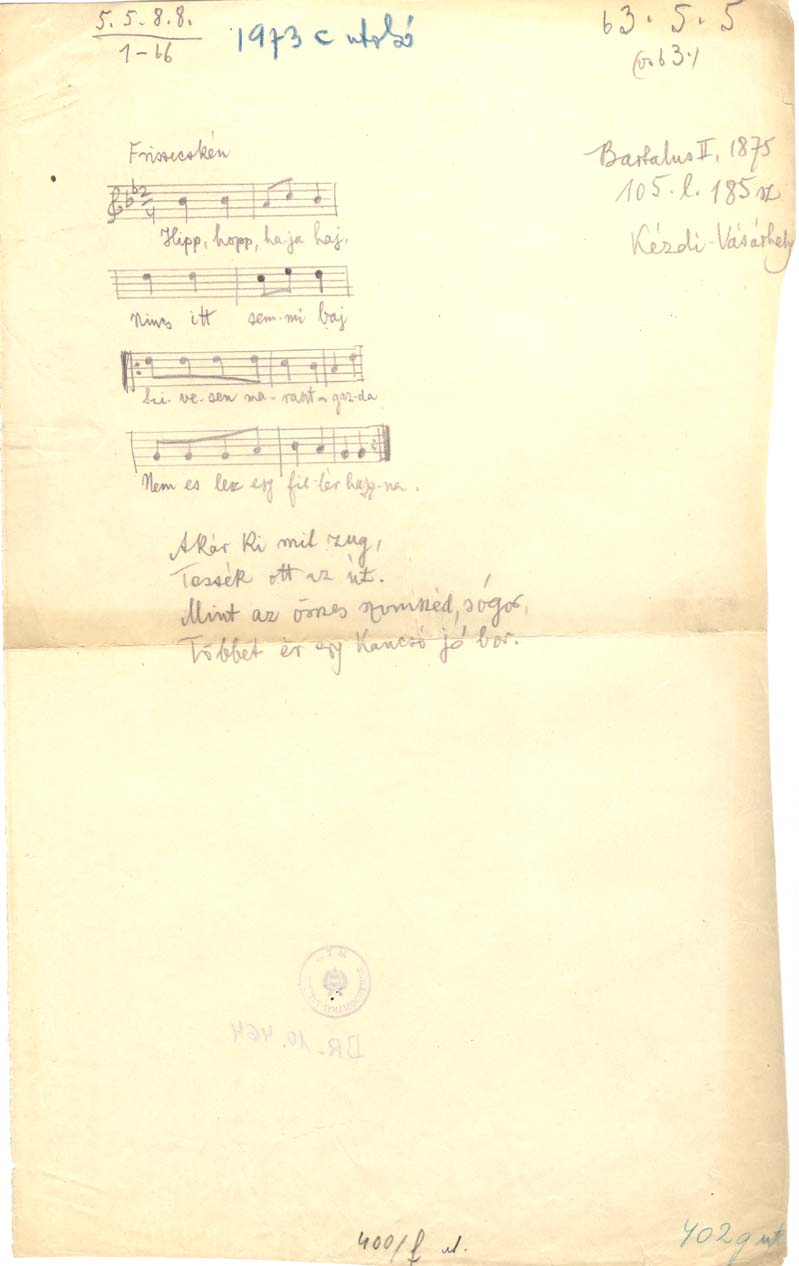 5. 5. 8. 8.
1-b6
1973 c utolsó
b3. 5. 5
(v. b3.)
Bartalus II, 1875
105. l. 185 sz
Kézdi-Vásárhely
Frissecskén
2/4
Hipp, hopp, ha-ja haj,
Nincs itt sem-mi baj
Szi-ve-sen ma-raszt a gaz-da
Nem es lesz egy fil-lér hasz-na.
Akár ki mit zug,
Tessék ott az út.
Mint az összes szomszéd, sógor,
Többet ér egy kancsó jó bor.
BR. 10.464
400/f ut.
402g ut